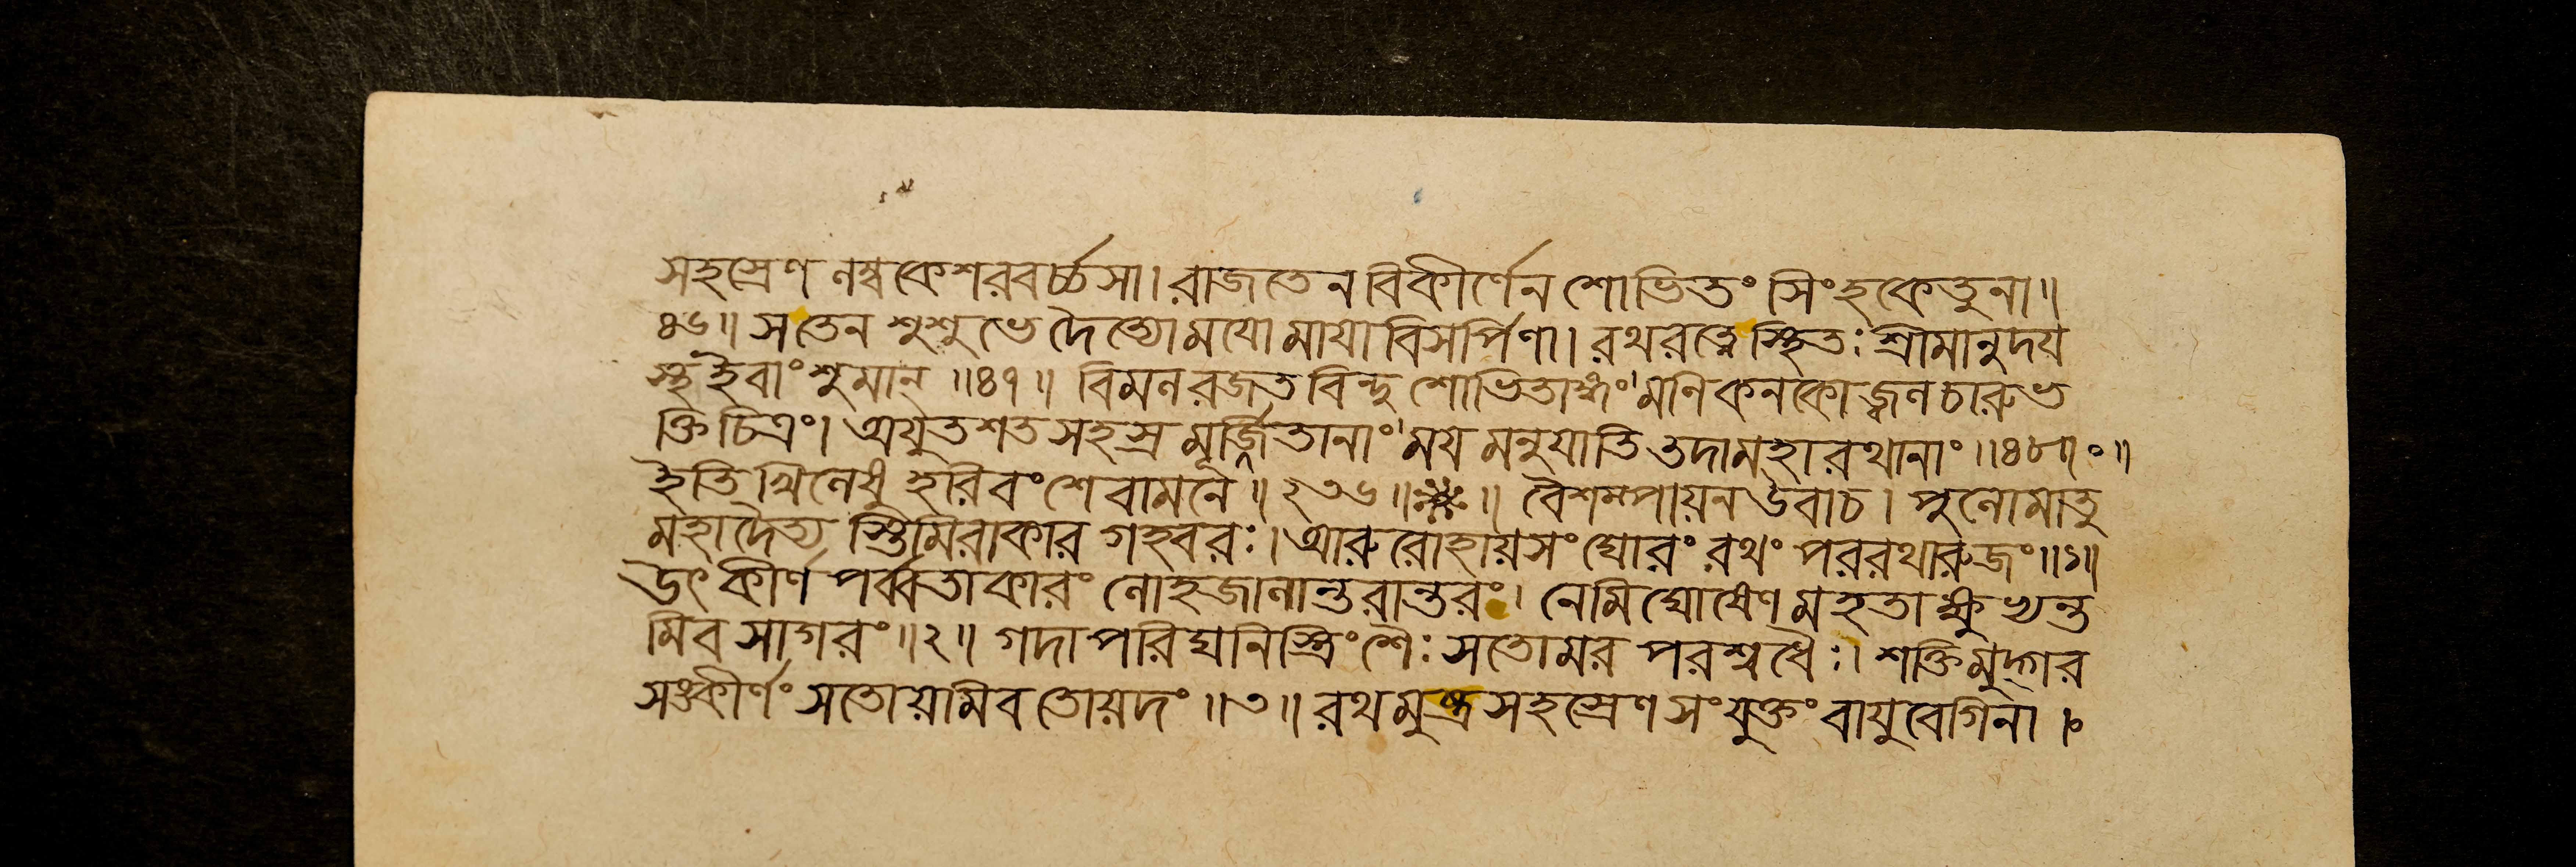 সহস্রেণ নম্বকেশরবর্চ্চসা। রাজতেন বিকীর্ণেন শোভিতং সিংহকেতুনা॥
৪৬॥ স তেন শুশুভে দৈত্যো ময়ো মায়া বিসর্পিণা। রথরত্নে স্থিতঃ শ্রীমানুদয়
স্থ ইবাংশুমান্ ॥৪৭॥ বিমনরজত বিন্দু শোভিতাঙ্গং মনিকনকোজ্জ্বনচারুভ
ক্তিচিত্রং। অযুতশতসহস্র মূর্জ্জিতানাং ময় মনুযাতি তদা মহারথানাং ॥৪৮॥০॥
ইতি খিনেষু হরিবংশে বামনে॥২৩৬॥ ॥ বৈশম্পায়ন উবাচ। পুনোমাতু
মহাদৈত্য স্তিমিরাকার গহ্বরঃ। আরুরোহায়সং ঘোরং রথং পররথারুজং॥১॥
উৎকীর্ণ পর্ব্বতাকারং নোহজানান্তরান্তরং। নেমিঘোষেণ মহতা ক্ষুভ্যন্ত
মিব সাগরং॥২॥ গদাপরিঘনিস্ত্রিংশৈঃ সতোমর পরশ্বধৈঃ। শক্তিমুদ্গর
সঙ্কীর্ণং সতোয়মিব তোয়দং ॥৩॥ রথমুষ্ট্রসহস্রেণ সংযুক্তং বায়ুবেগিনা।